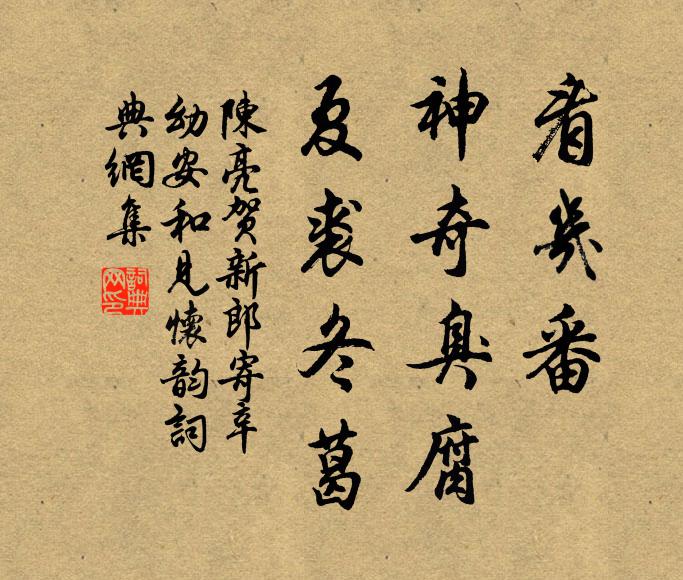 看幾番
神奇臭腐
夏裘冬葛
陳亮賀新郎寄辛
幼安和見懷韵詞
典網集
詞典網印